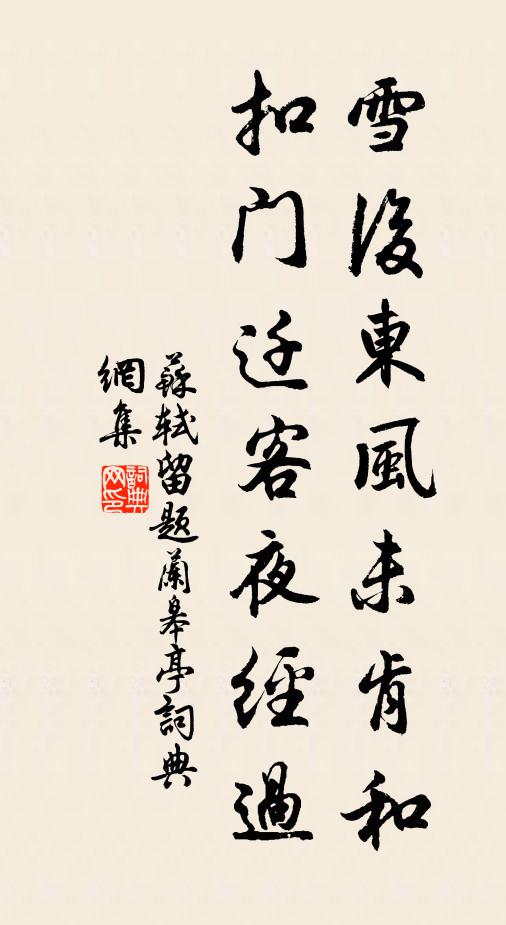 雪後東風未肯和
扣门迁客夜經過
蘇轼留题蘭皋亭詞典
網集
詞典
网印